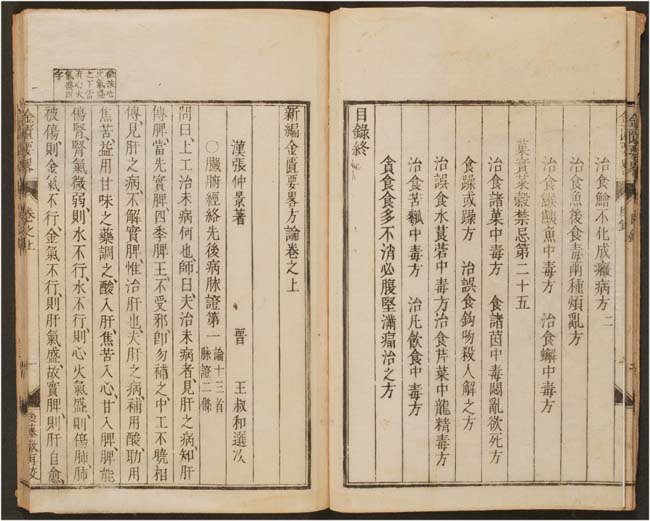 金匱要畧
目錄
治食鱠不化成癥病方二
治食魚後食毒兩種煩亂方
治食鯸鮧魚中毒方 治食蟹中毒方
菓實菜穀禁忌第二十五
治食諸菓中毒方 食諸茵中毒悶亂欲死方
食躁或躁方 治誤食鈎吻殺人解之方
治誤食水莨菪中毒方治食芹菜中龍精毒方
治食苦瓠中毒方 治凡飲食中毒方
貪食食多不消心腹堅滿痛治之方
目錄終
新編金匱要畧方論卷之上
漢張仲景著 晉 王叔和選次
〇臟腑經絡先後病脉證第一 論十三首
脉證二條
問曰上工治未病何也師曰夫治未病者見肝之病知肝
傳脾當先實脾四季脾王不受邪卽勿補之中工不曉相
傳見肝之病不解實脾惟治肝也夫肝之病補用酸助用
焦苦益用甘味之藥調之酸入肝焦苦入心甘入脾脾能
傷腎腎氣微弱則水不行水不行則心火氣盛則傷肺肺
被傷則金氣不行金氣不行則肝氣盛故實脾則肝自愈
按心
火氣盛
之下當
有心火
氣盛四
字
金匱要畧
卷之上
一
再校